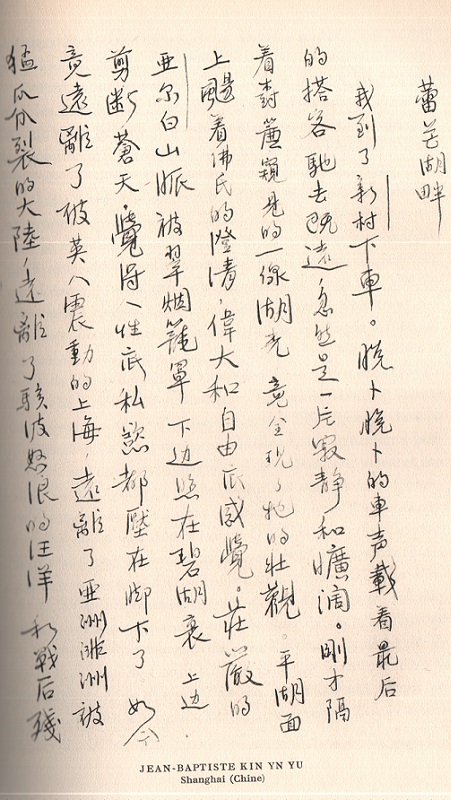 蕾芒湖畔
我到了新村下車。脫卜脫卜的車声載着最后
的搭客馳去既远，忽然是一片寂静和曠濶。剛才隔
着封簾窺見的一線湖光 竟全現了牠的壯觀。平湖面
上颺着沸氏的澄清，偉大和自由底感覺。莊嚴的
亚尔白山脈被翠烟籠罩 下边照在碧湖裹 上边
剪断蒼天，覺得人性底私慾都壓在脚下了 如今
竟遠離了被英人震動的上海，遠離了亚洲非洲被
猛爪分裂的大陸，遠離了駭波怒浪的汪洋 和戰后殘
JEAN-BAPTISTE KIN YN YU
Shanghai (Chine)